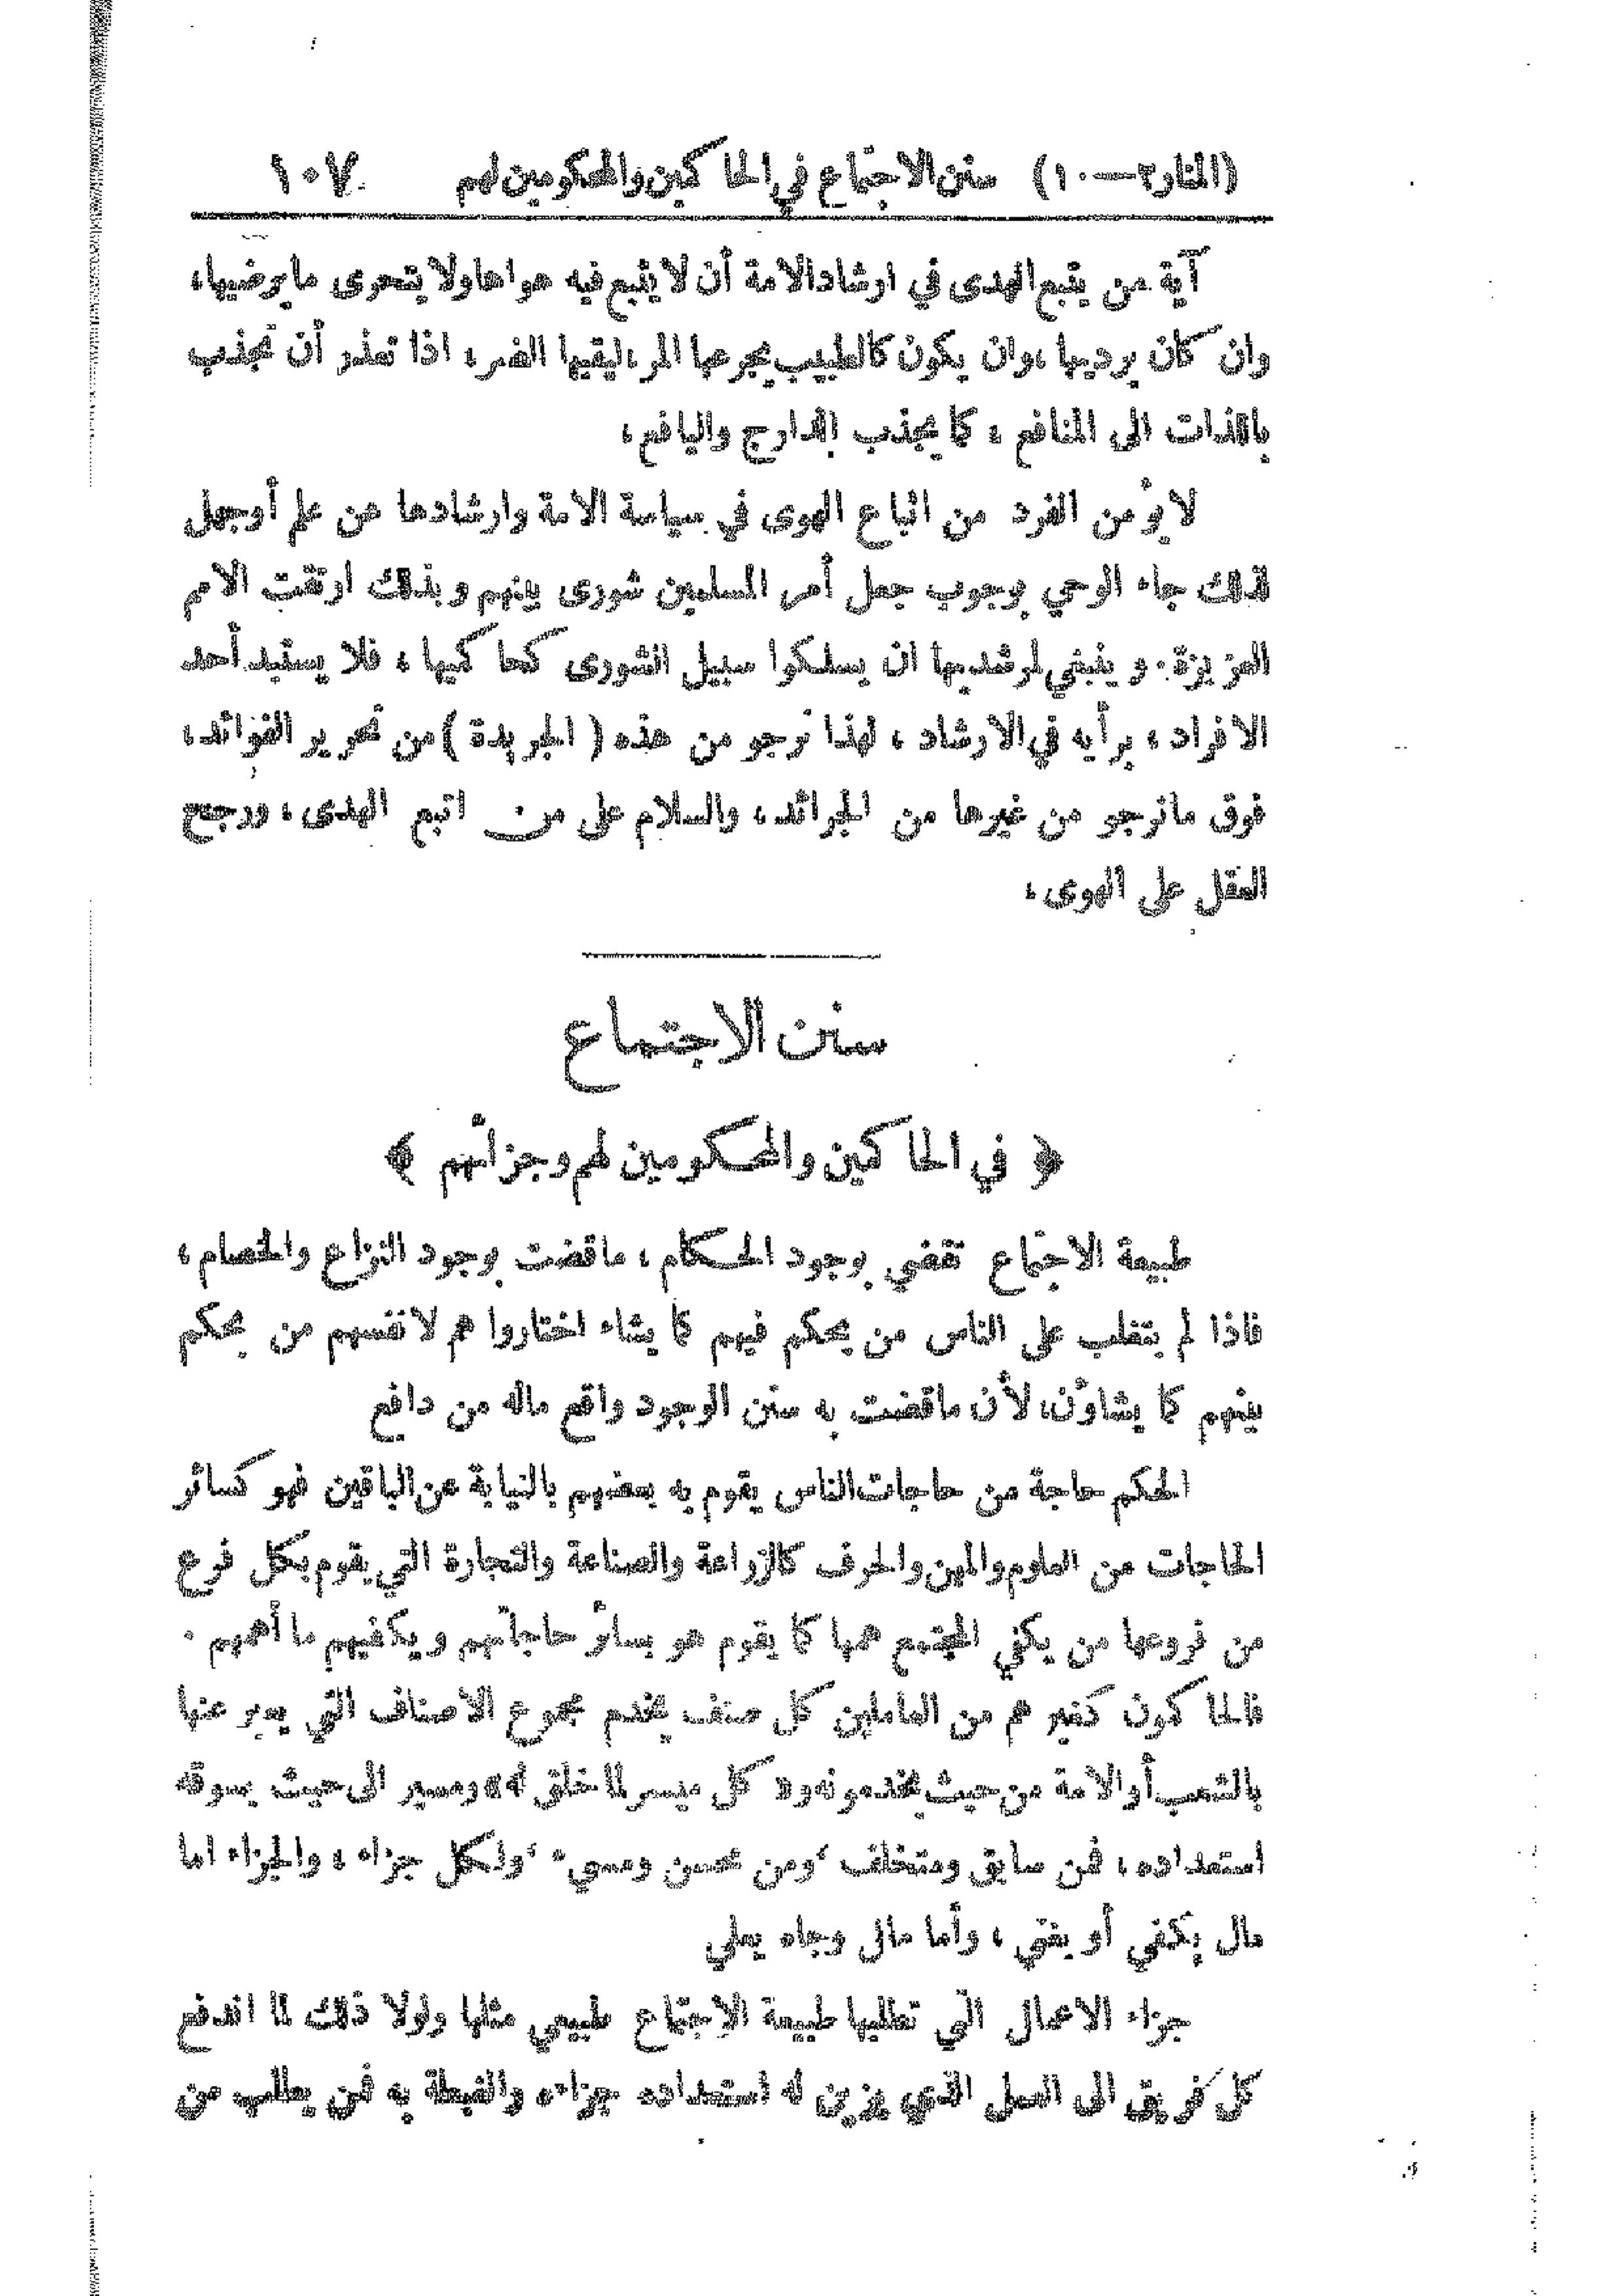 (المنار٢—١٠) سنن الاجتماع في الحاكمين والمحكومين لهم ١٠٧
آية من يتبع الهدى في ارشاد الامة أن لا يتبع فيه هواها ولا يتحرى ما يرضيها،
وان كان يرديها ، وان يكون كالطبيب يجرعها المر، ليقيها الضر، اذا تعذر أن تجذب
باللذات الى المنافع ، كما يجذب الدارج واليافع،
لا يؤمن الفرد من اتباع الهوى في سياسة الامة وارشادها عن علم أو جهل
لذلك جاء الوحي بوجوب جعل أمر المسلمين شورى بينهم وبذلك ارتقت الامم
العزيزة . وينبغي لمرشديها ان يسلكوا سبيل الشورى كحاكميها ، فلا يستبد أحد
الافراد ، برأيه في الارشاد ، لهذا نرجو من هذه ( الجريدة ) من تحرير الفوائد،
فوق ما نرجو من غيرها من الجرائد، والسلام على من اتبع الهدى ، ورجح
العقل على الهوى ،
سنن الاجتماع
﴿ في الحاكمين والمحكومين لهم وجزائهم ﴾
طبيعة الاجتماع تقضي بوجود الحكام ، ما قضت بوجود النزاع والخصام ،
فاذا لم يتغلب على الناس من يحكم فيهم كما يشاء اختاروا هم لانفسهم من يحكم
بينهم كما يشاؤن، لأن ماقضت به سنن الوجود واقع ماله من دافع
الحكم حاجة من حاجات الناس يقوم به بعضهم بالنيابة عن الباقين فهو كسائر
الحاجات من العلوم والمهن والحرف كالزراعة والصناعة والتجارة التي يقوم بكل فرع
من فروعها من يكفي المجتمع همها كما يقوم هو بسائر حاجاتهم ويكفيهم ما أهمهم .
فالحاكون كغيرهم من العاملين كل صنف يخدم مجموع الاصناف التي يعبر عنها
بالشعب أو الامة من حيث يخدمونه و« كل ميسر لما خلق له » ومسير الى حيث يسوقه
استعداده ، فمن سابق ومتخلف ، ومن محسن ومسيء ، ولكل جزاء ، والجزاء اما
مال يكفي أو يغني ، وأما مال وجاه يعلي
جزاء الاعمال التي تطلبها طبيعة الاجتماع طبيعي مثلها ولولا ذلك لما اندفع
كل فريق الى العمل الذي يزين له استعداده جزاءه والغبطة به فمن يطلب من